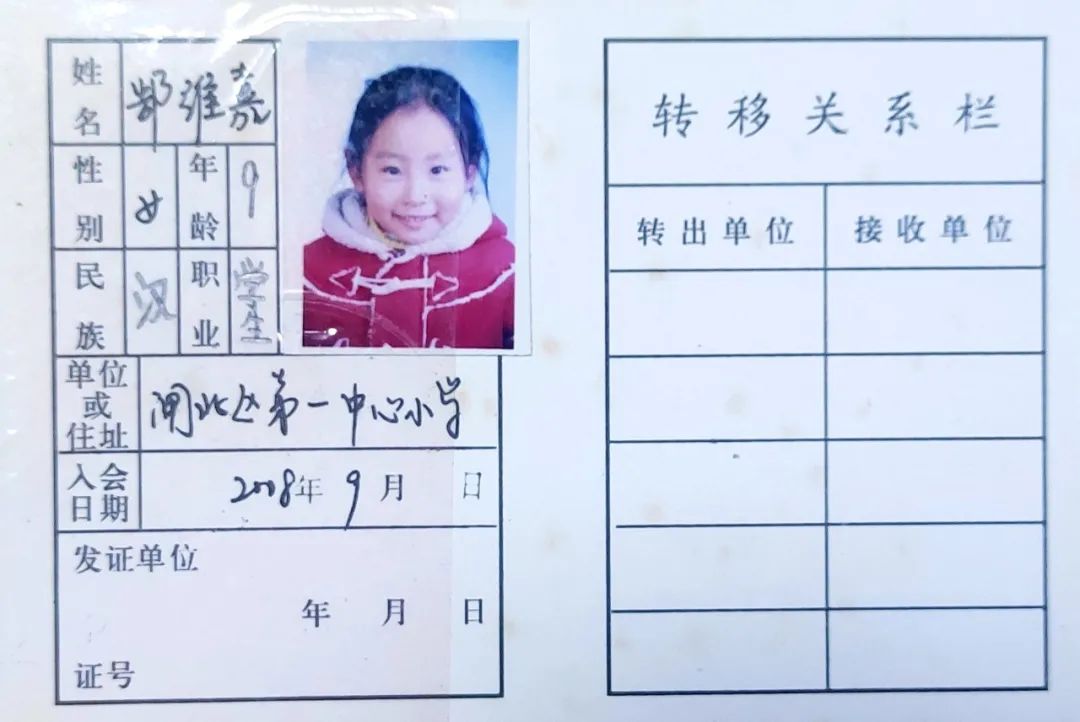 姓名 郜维嘉
性别 女 年龄 9
民族 汉 职业 学生
单位或住址 闸北区第一中心小学
入会日期 2008年 9 月 日
发证单位
年 月 日
证号
转移关系栏
转出单位 接收单位